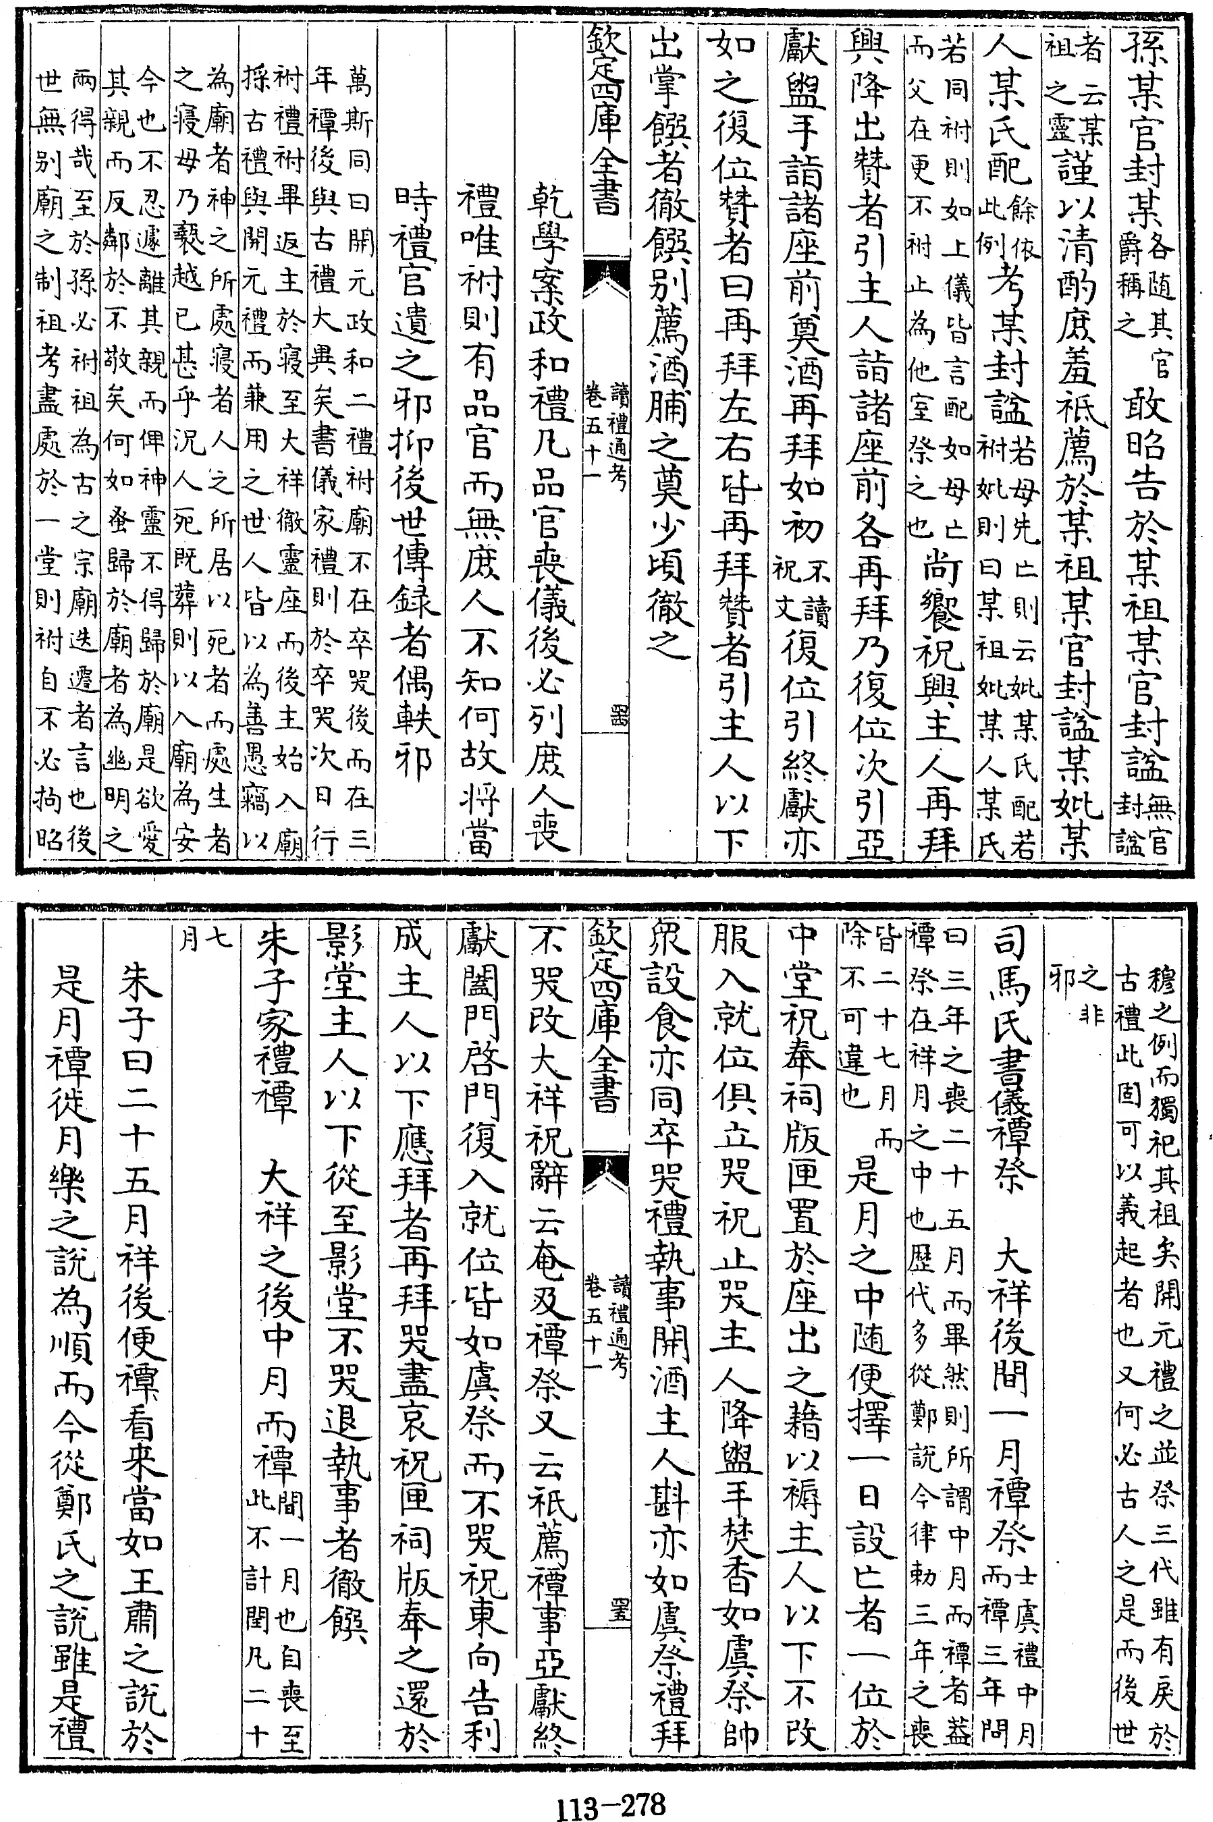 孫某官封某各随其官爵稱之敢昭告於某祖某官封諡無官封諡
者云某祖之靈謹以清酌庶羞祗薦於某祖某官封諡某妣某
人某氏配餘依此例考某封諡若母先亡則云妣某氏配若祔妣則曰某祖妣某人某氏
若同祔則如上儀皆言配如母亡而父在更不祔止為他室祭之也尚饗祝興主人再拜
興降出贊者引主人詣諸座前各再拜乃復位次引亞
獻盥手詣諸座前奠酒再拜如初不讀祝文復位引終獻亦
如之復位贊者曰再拜左右皆再拜贊者引主人以下
出掌饌者徹饌别薦酒脯之奠少頃徹之
欽定四庫全書 讀禮通考卷五十一 罢
乾學案政和禮凡品官喪儀後必列庶人喪
禮唯祔則有品官而無庶人不知何故將當
時禮官遺之邪抑後世傳録者偶軼邪
萬斯同曰開元政和二禮祔廟不在卒哭後而在三
年禫後與古禮大異矣書儀家禮則於卒哭次日行
祔禮祔畢返主於寢至大祥徹靈座而後主始入廟
採古禮與開元禮而兼用之世人皆以為善愚竊以
為廟者神之所處寢者人之所居以死者而處生者
之寢毋乃褻越已甚乎況人死既葬則以入廟為安
今也不忍遽離其親而俾神靈不得歸於廟是欲愛
其親而反鄰於不敬矣何如蚤歸於廟者為幽明之
兩得哉至於孫必祔祖為古之宗廟迭遷者言也後
世無别廟之制祖考盡處於一堂則祔自不必拘昭
穆之例而獨祀其祖矣開元禮之並祭三代雖有戾於
古禮此固可以義起者也又何必古人之是而後世
之非
邪
司馬氏書儀禫祭 大祥後間一月禫祭士虞禮中月而禫三年問
曰三年之喪二十五月而畢然則所謂中月而禫者葢禫祭在祥月之中也歴代多從鄭説今律勅三年之喪
皆二十七月而除不可違也是月之中随便擇一日設亡者一位於
中堂祝奉祠版匣置於座出之藉以褥主人以下不改
服入就位俱立哭祝止哭主人降盥手焚香如虞祭帥
衆設食亦同卒哭禮執事開酒主人斟亦如虞祭禮拜
欽定四庫全書 讀禮通考卷五十一 罣
不哭改大祥祝辭云奄及禫祭又云祇薦禫事亞獻終
獻闔門啓門復入就位皆如虞祭而不哭祝東向告利
成主人以下應拜者再拜哭盡哀祝匣祠版奉之還於
影堂主人以下從至影堂不哭退執事者徹饌
朱子家禮禫 大祥之後中月而禫間一月也自喪至此不計閏凡二十
七
月
朱子曰二十五月祥後便禫看来當如王肅之説於
是月禫徙月樂之説為順而今從鄭氏之説雖是禮
113-278